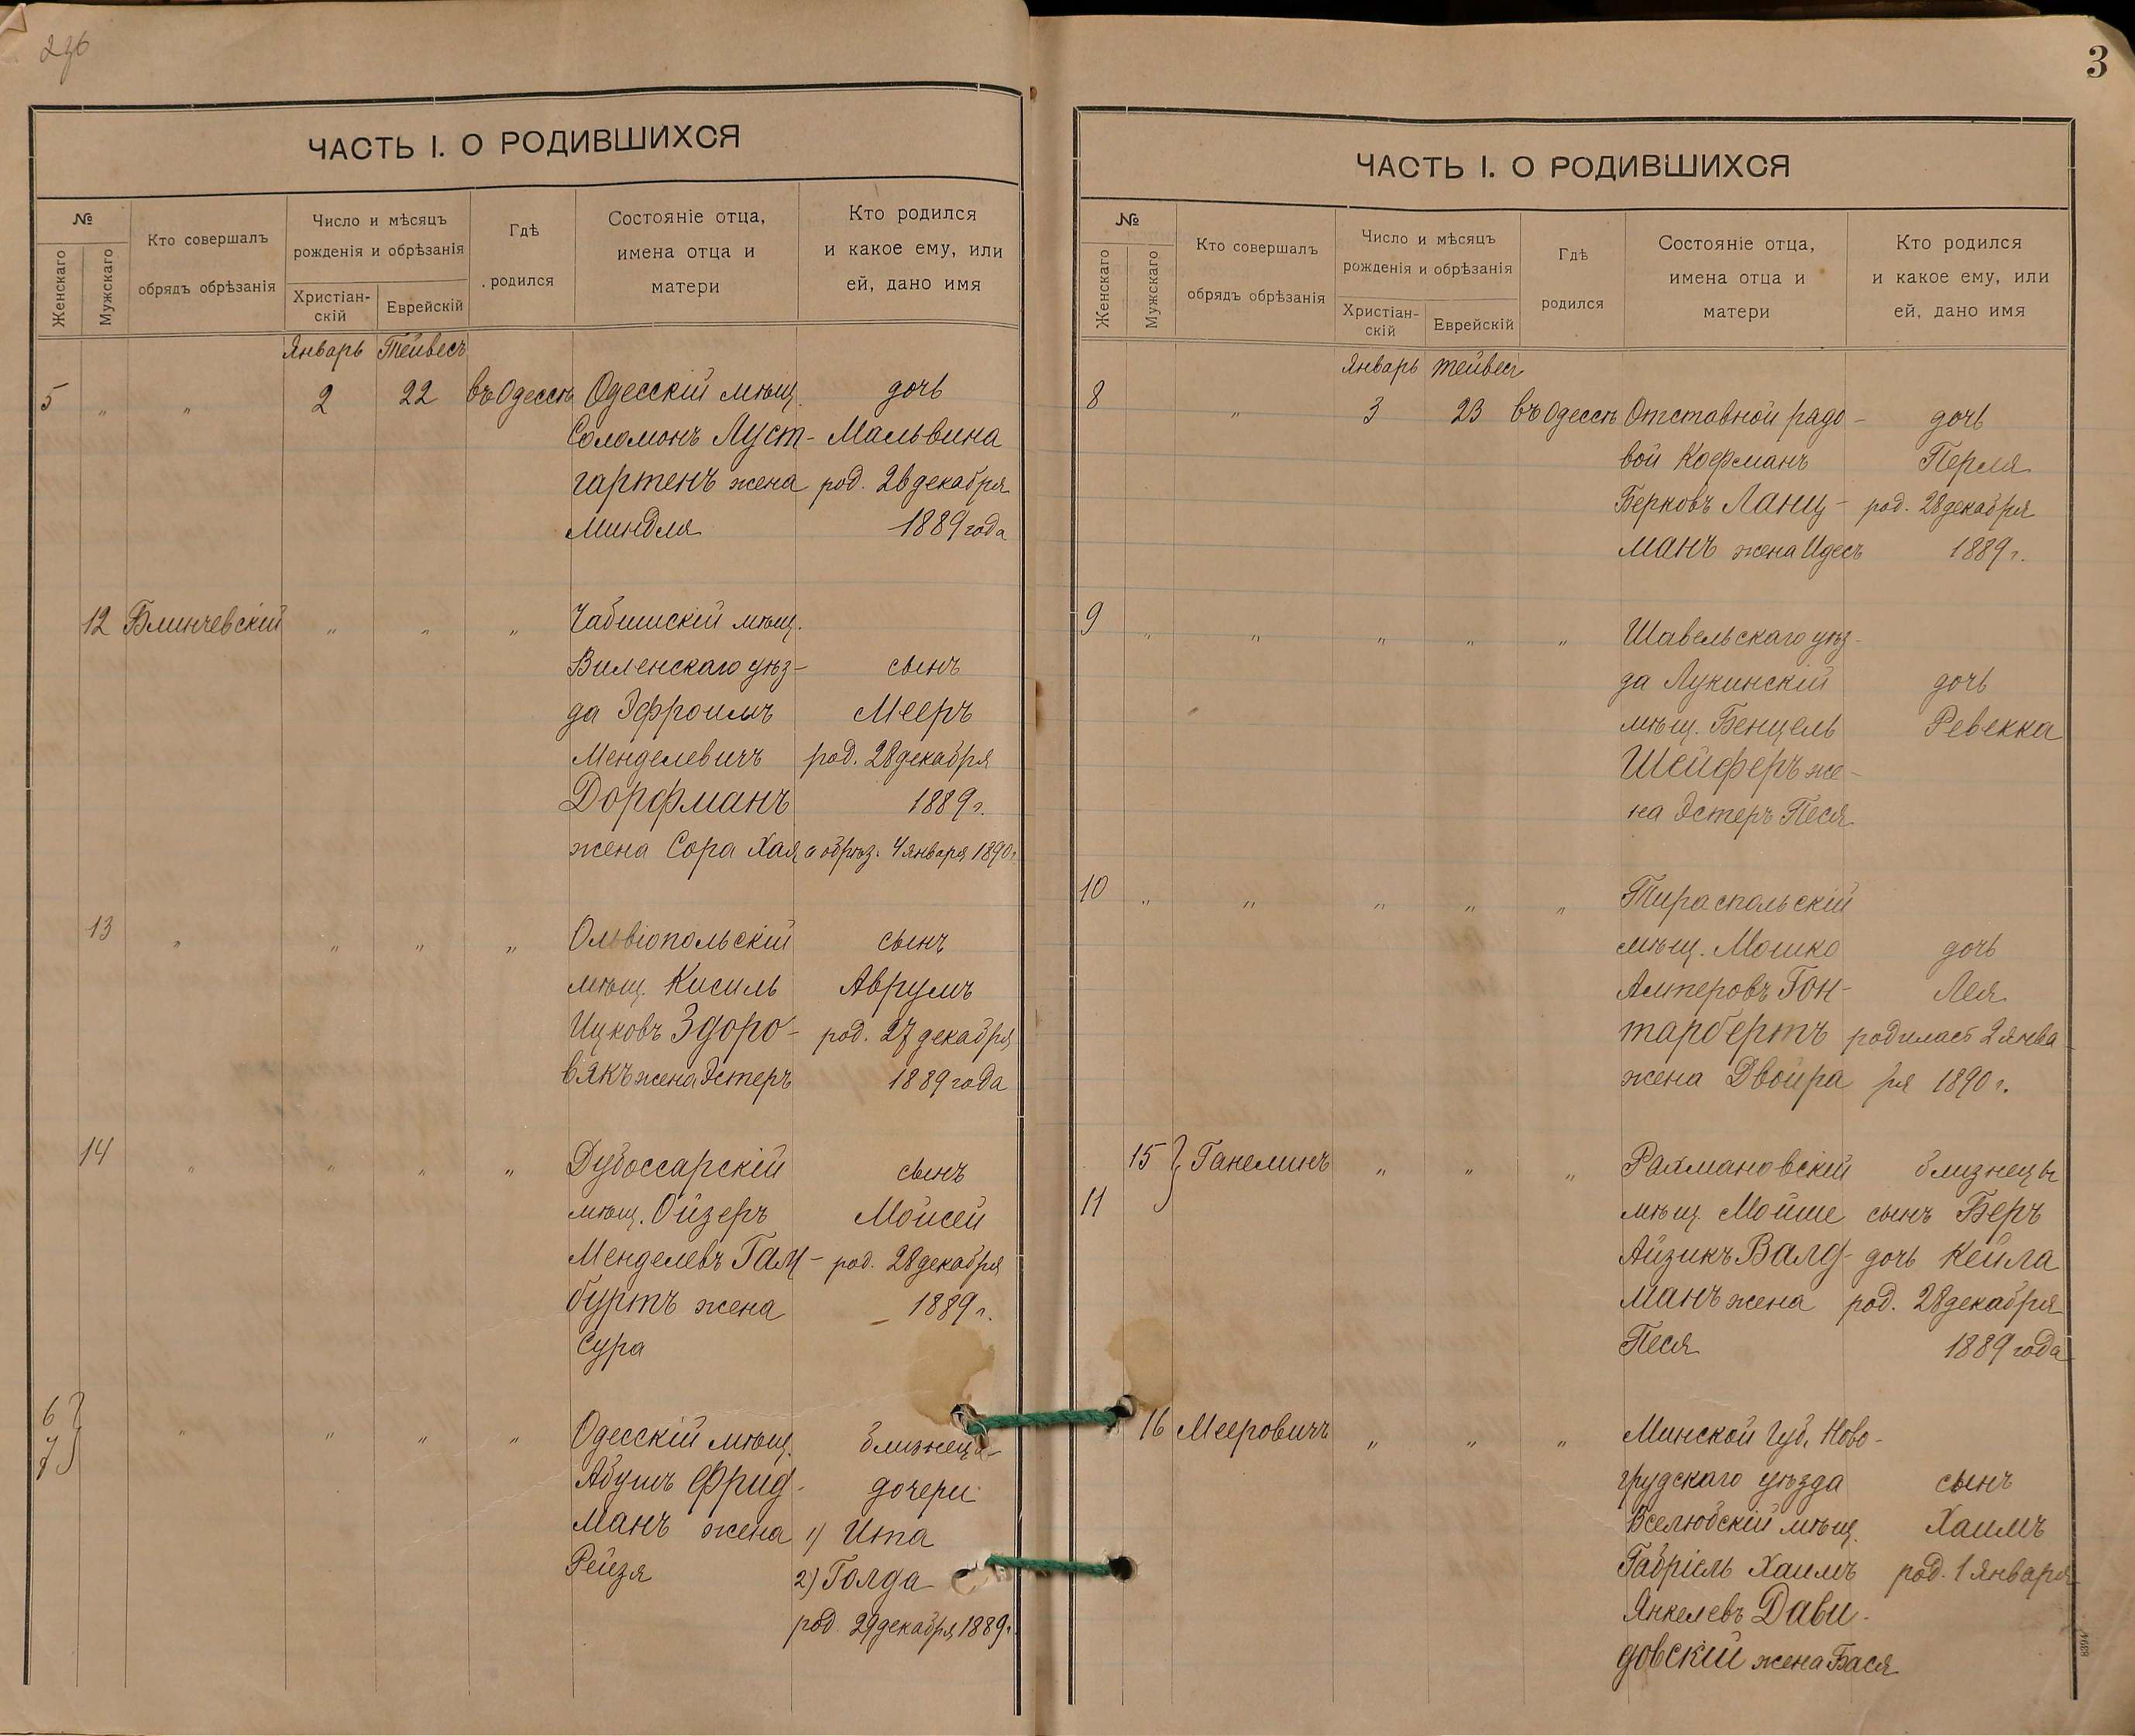 236
ЧАСТЬ I. О РОДИВШИХСЯ
№
Женскаго
Мужскаго
Кто совершалъ
обрядъ обрѣзанія
Число и мѣсяцъ
рожденія и обрѣзанія
Христіан-
скій
Еврейскій
Гдѣ
родился
Состояніе отца,
имена отца и
матери
Кто родился
и какое ему, или
ей, дано имя
Январь Тейвесъ
5 „ „ 2 22 въ Одессѣ Одесскій мѣщ. дочь
Соломонъ Луст- Мальвина
гартенъ жена род. 26 декабря
Миндля 1889 года
12 Блинчевскій „ „ „ Чабишскій мѣщ.
Виленскаго уѣз- сынъ
да Эфроимъ Мееръ
Менделевичъ род. 28 декабря
Дорфманъ 1889 г.
жена Сора Хая а обрѣз. 4 января 1890 г.
13 „ „ „ „ Ольвіопольскій сынъ
мѣщ. Кисиль Аврумъ
Ицковъ Здоро- род. 27 декабря
вякъ жена Эстеръ 1889 года
14 „ „ „ „ Дубоссарскій сынъ
мѣщ. Ойзеръ Мойсей
Менделевъ Гам- род. 28 декабря
буртъ жена 1889 г.
Сура
6
7 „ „ „ „ Одесскій мѣщ. близнецы
Абумъ Фрид- дочери
манъ жена 1) Ита
Рейзя 2) Голда
род. 29 декабря 1889 г.
3
ЧАСТЬ I. О РОДИВШИХСЯ
№
Женскаго
Мужскаго
Кто совершалъ
обрядъ обрѣзанія
Число и мѣсяцъ
рожденія и обрѣзанія
Христіан-
скій
Еврейскій
Гдѣ
родился
Состояніе отца,
имена отца и
матери
Кто родился
и какое ему, или
ей, дано имя
Январь тейвесъ
8 „ 3 23 въ Одессѣ Отставной рядо- дочь
вой Кофманъ Перля
Берковъ Ланц- род. 28 декабря
манъ жена Идесъ 1889 г.
9 „ „ „ „ „ Шавельскаго уѣз-
да Лукинскій дочь
мѣщ. Бенцель Ревекка
Шейферъ же-
на Эстеръ Песя
10 „ „ „ „ „ Тираспольскій
мѣщ. Мошко дочь
Алтеровъ Гон- Лея
тарбертъ родилась 2 янва
жена Двойра ря 1890 г.
15 Ганелинъ „ „ „ Рахмановскій близнецы
11 мѣщ. Мойше сынъ Беръ
Айзикъ Валд- дочь Кейла
манъ жена род. 28 декабря
Песя 1889 года
16 Мееровичъ „ „ „ Минской Губ. Ново-
грудскаго уѣзда сынъ
Вселюбскій мѣщ. Хаимъ
Габріель Хаимъ род. 1 Января
Янкелевъ Дави-
довскій жена Бася